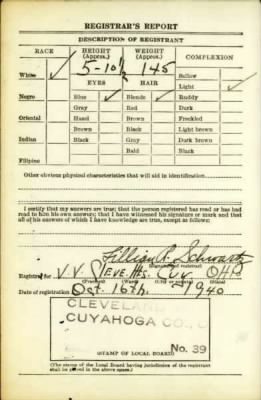 REGISTRAR'S REPORT
DESCRIPTION OF REGISTRANT
RACE HEIGHT (Approx.) WEIGHT (Approx.) COMPLEXION
5-10½ 145
White ✓ Sallow
EYES HAIR Light ✓
Negro Blue ✓ Blonde ✓ Ruddy
Gray Red Dark
Oriental Hazel Brown Freckled
Brown Black Light brown
Indian Black Gray Dark brown
Bald Black
Filipino
Other obvious physical characteristics that will aid in identification
I certify that my answers are true; that the person registered has read or has had
read to him his own answers; that I have witnessed his signature or mark and that
all of his answers of which I have knowledge are true, except as follows:
Lillian Schwartz
(Signature of registrar)
Registrar for V.V. Cleve. Hts. Cuy OHIO
(Precinct) (Ward) (City or county) (State)
Date of registration Oct. 16th. 1940
CLEVELAND
CUYAHOGA CO., O
No. 39
(STAMP OF LOCAL BOARD)
(The stamp of the Local Board having jurisdiction of the registrant
shall be placed in the above space.)